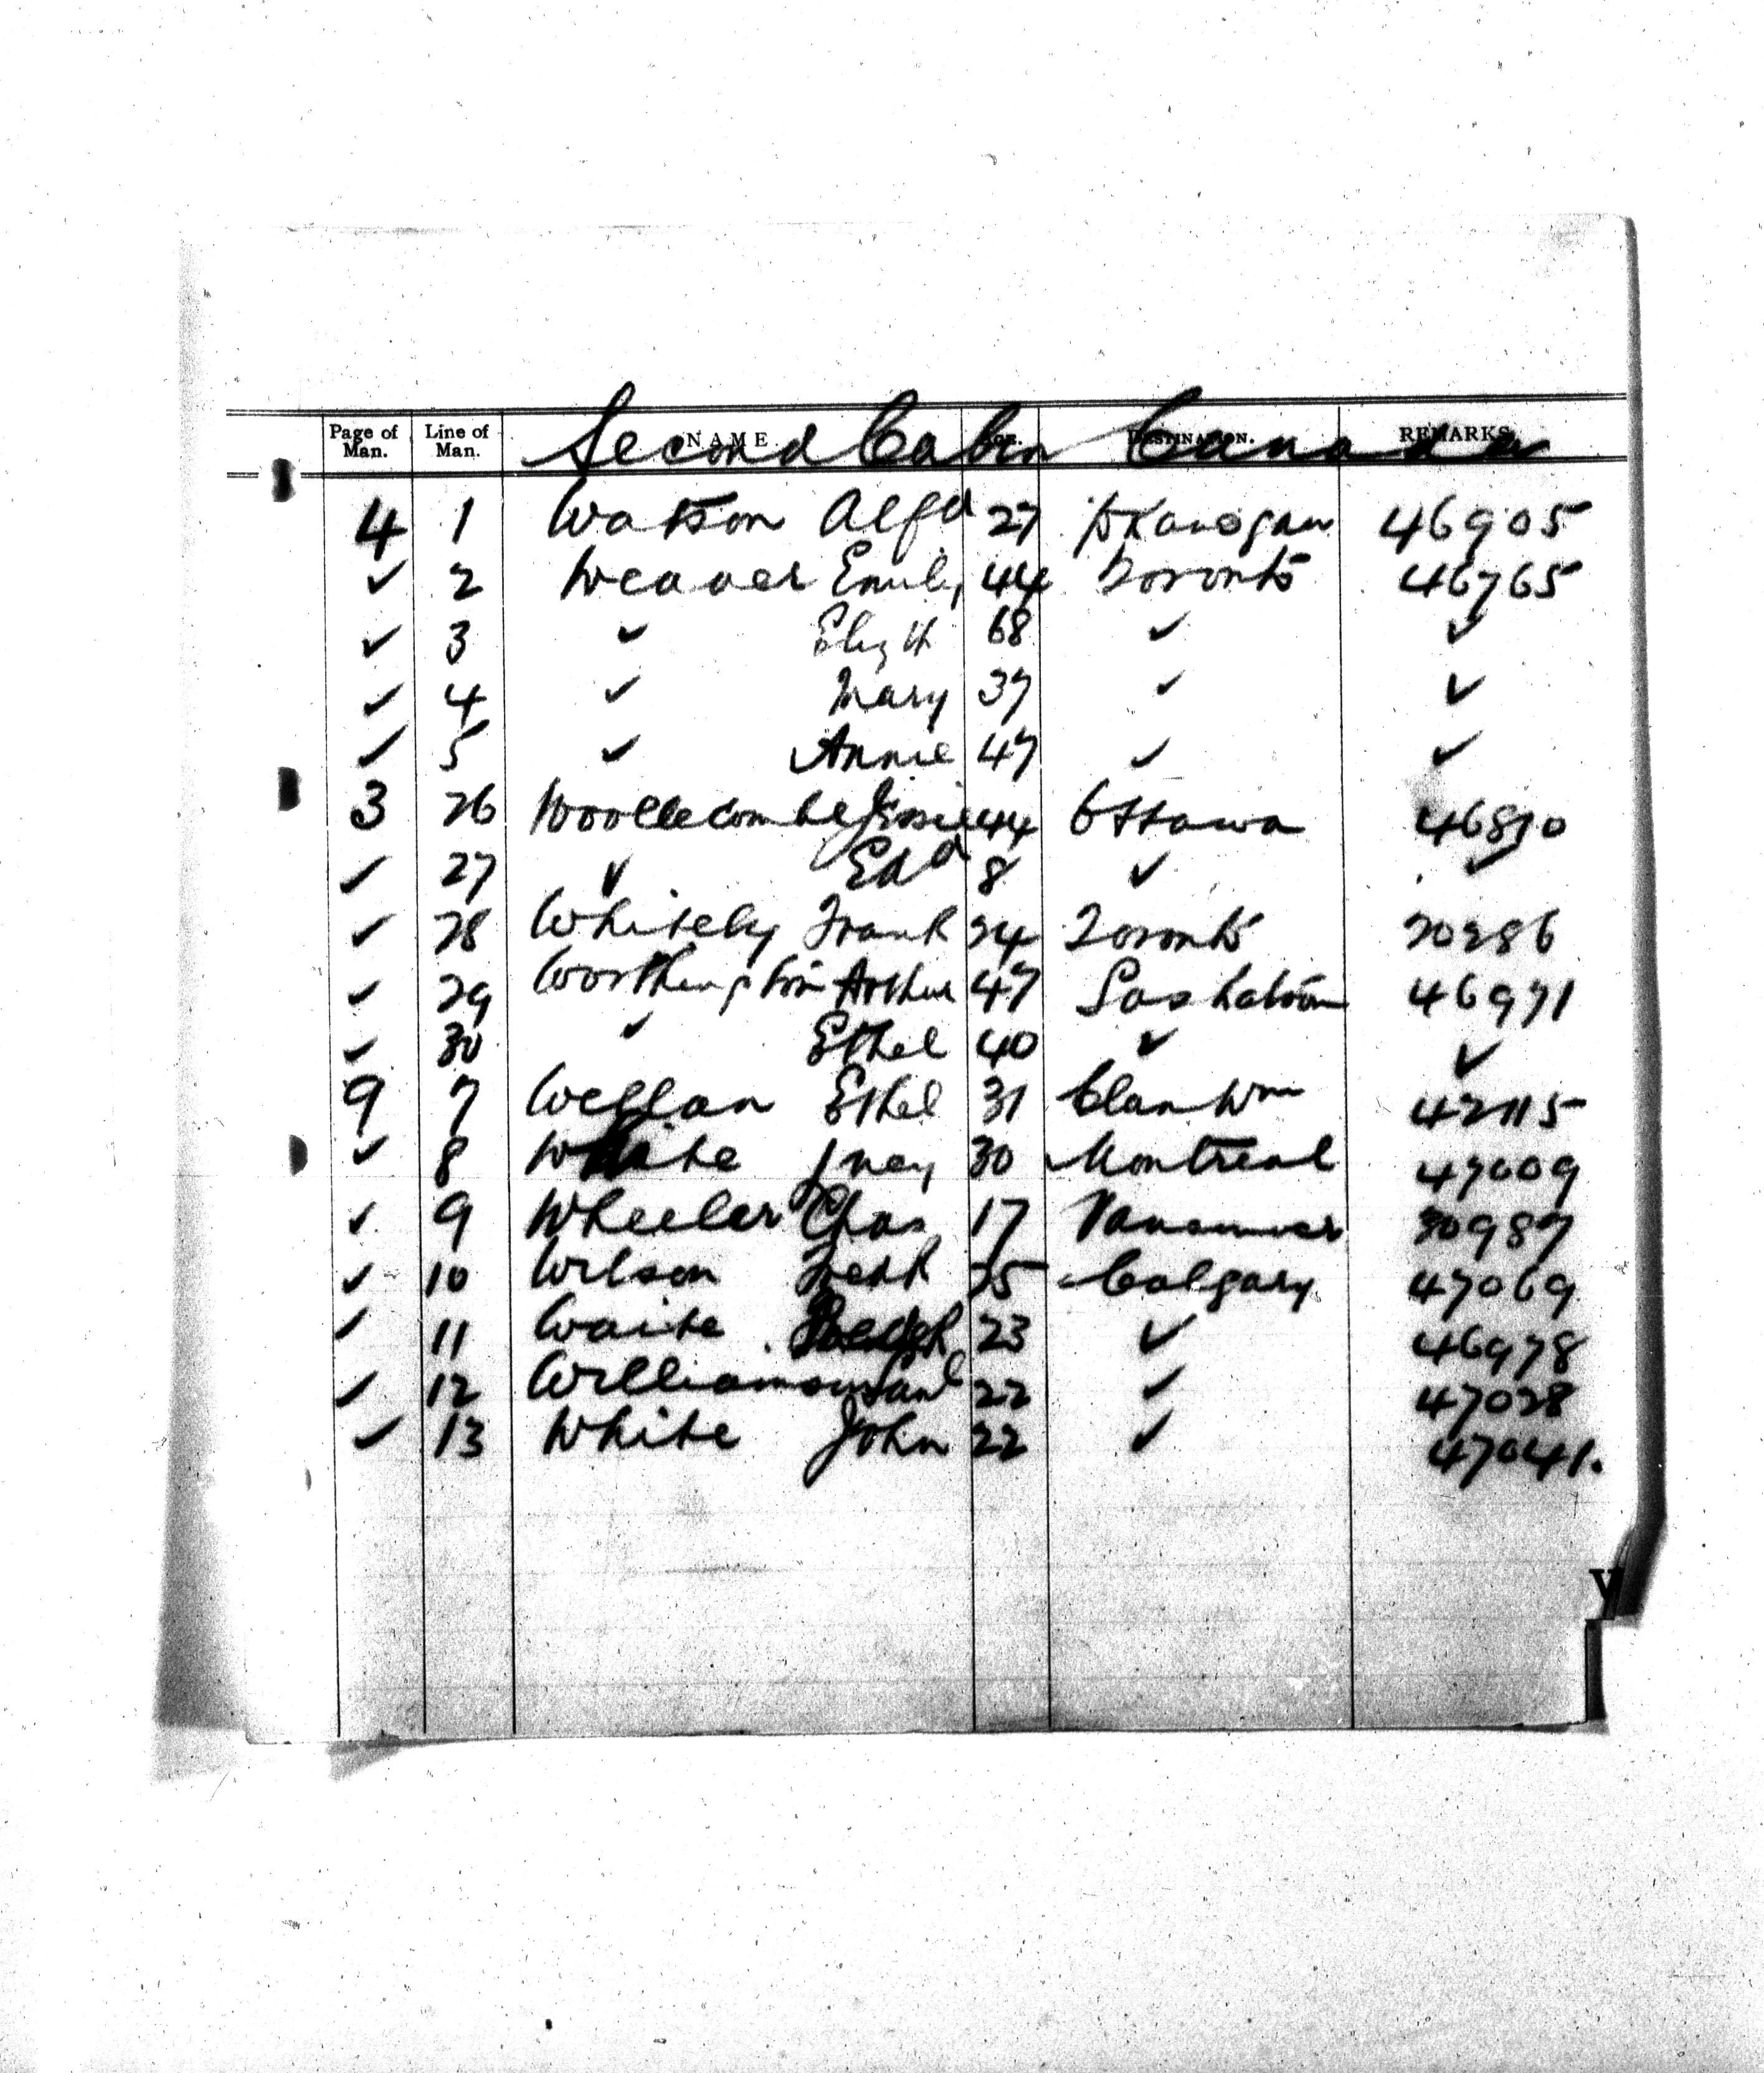 Second Cabin Canada
Page of Man. Line of Man. NAME AGE. DESTINATION. REMARKS
4 1 Watson Alfd 27 Okanogan 46905
✓ 2 Weaver Emily 44 Toronto 46765
✓ 3 ✓ Elizth 68 ✓ ✓
✓ 4 ✓ Mary 37 ✓ ✓
✓ 5 ✓ Annie 47 ✓ ✓
3 26 Woollecombe Jessie 44 Ottawa 46810
✓ 27 ✓ Edd 8 ✓ ✓
✓ 28 Whitely Frank 24 Toronto
✓ 29 Worthington Arthur 47 Saskatoon 46971
✓ 30 ✓ Ethel 40 ✓ ✓
9 7 Ethel 31 Clan Wm 42115
✓ 8 White 30 Montreal 47009
✓ 9 Wheeler Chas 17 Vancouver 30987
✓ 10 Wilson Fredk 25 Calgary 47069
✓ 11 Waite 23 ✓ 46978
✓ 12 Williamson Saml 22 ✓ 47028
✓ 13 White John 22 ✓ 47041.
V